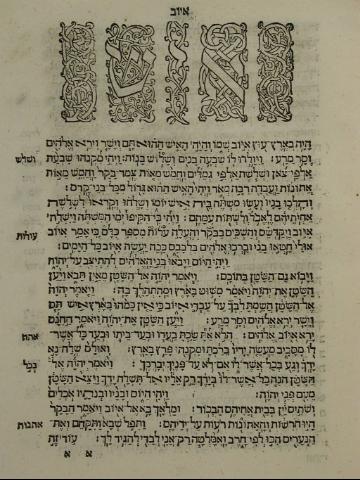 איוב
איש
היה בארץ עוץ איוב שמו והיה האיש ההוא תם וישר וירא אלהים
וסר מרע: ויולדו לו שבעה בנים ושלוש בנות: ויהי מקנהו שבעת
ושלש
אלפי צאן ושלשת אלפי גמלים וחמש מאות צמד בקר וחמש מאות
אתונות ועבדה רבה מאד ויהי האיש ההוא גדול מכל בני קדם:
והלכו בניו ועשו משתה בית איש יומו ושלחו וקראו לשלשת
אחיותיהם לאכל ולשתות עמהם: ויהי כי הקיפו ימי המשתה וישלח
איוב ויקדשם והשכים בבקר והעלה עולות מספר כלם כי אמר איוב
עולות
אולי חטאו בני וברכו אלהים בלבבם ככה יעשה איוב כל הימים:
ויהי היום ויבאו בני האלהים להתיצב על יהוה
ויבוא גם השטן בתוכם: ויאמר יהוה אל השטן מאין תבא ויען
השטן את יהוה ויאמר משוט בארץ ומהתהלך בה: ויאמר יהוה
אל השטן השמת לבך על עבדי איוב כי אין כמהו בארץ איש תם
וישר ירא אלהים וסר מרע: ויען השטן את יהוה ויאמר החנם
ירא איוב אלהים: הלא את שכת בעדו ובעד ביתו ובעד כל אשר
אתה
לו מסביב מעשה ידיו ברכת ומקנהו פרץ בארץ: ואולם שלח נא
ידך וגע בכל אשר לו אם לא על פניך יברכך: ויאמר יהוה אל
בכל
השטן הנה כל אשר לו בידך רק אליו אל תשלח ידך ויצא השטן
מעם פני יהוה: ויהי היום ובניו ובנתיו אכלים
ושתים יין בבית אחיהם הבכור: ומלאך בא אל איוב ויאמר הבקר
היו חרשות והאתונות רעות על ידיהם: ותפל שבא ותקחם ואת
אתנות
הנערים הכו לפי חרב ואמלטה רק אני לבדי להגיד לך: עוד זה
א א